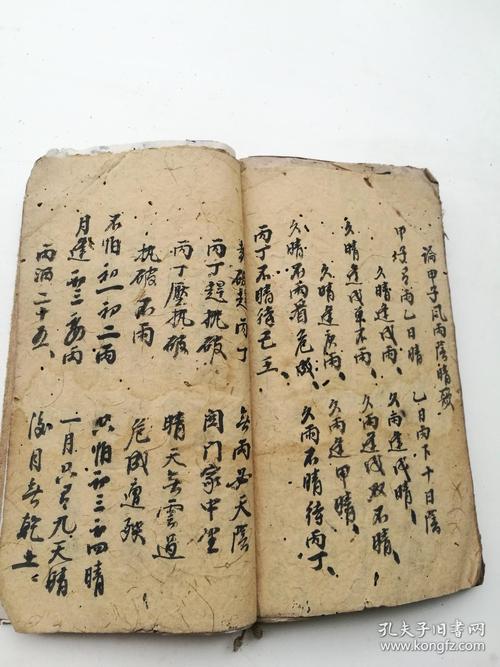 論甲子風雨蔭晴歌
甲日雨乙日晴 乙日雨下十日蔭
久晴逢戊雨、 久雨逢戊晴、
久晴逢戊不雨、 久雨逢戊双不晴、
久晴逢庚雨、 久雨逢甲晴、
久晴不雨看危成、 久雨不晴待丙丁、
丙丁不晴待己壬、
破赶丙丁 無雨必天蔭
丙丁趕执破 関门家中坐
丙丁壓执破 晴天無雲過
执破不雨 危成遭殃
不怕初一初二雨 只怕初三初四晴
月逢初三有雨 一月只有九天晴
雨洒二十五、 後月無乾土
孔夫子旧书网
www.kongfz.com